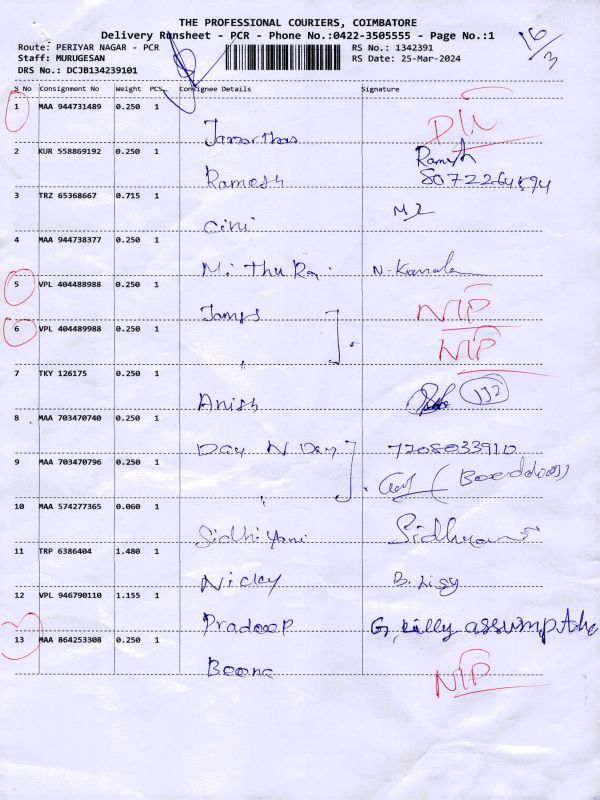 THE PROFESSIONAL COURIERS, COIMBATORE
Delivery Runsheet - PCR - Phone No.:0422-3505555 - Page No.:1
Route: PERIYAR NAGAR - PCR RS No.: 1342391
Staff: MURUGESAN RS Date: 25-Mar-2024
DRS No.: DCJB134239101
16/3
S No Consignment No Weight PCS Consignee Details Signature
1 MAA 944731489 0.250 1
2 KUR 558869192 0.250 1
Ramesh Ramesh
8072264594
3 TRZ 65368667 0.715 1
Cini
4 MAA 944738377 0.250 1
Mithu Ra. N. Kamala
5 VPL 404488988 0.250 1
James NIP
6 VPL 404489988 0.250 1
NIP
7 TKY 126175 0.250 1
Anish 112
8 MAA 703470740 0.250 1
Day N Day 7208033910
9 MAA 703470796 0.250 1
10 MAA 574277365 0.060 1
Sidhiyani
11 TRP 6386404 1.480 1
Nicky B. Ligy
12 VPL 946790110 1.155 1
Pradeep G. Lilly
13 MAA 864253308 0.250 1
Beena NIP